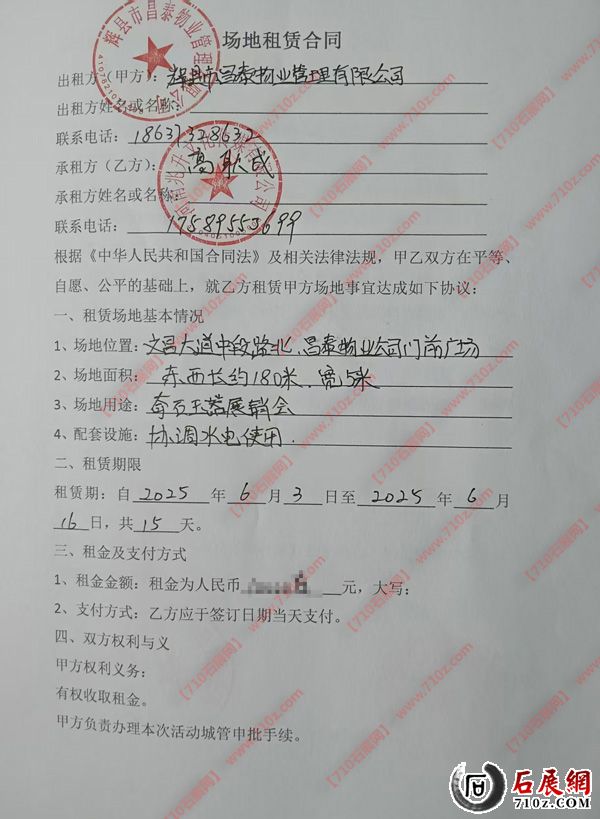 辉县市昌泰物业管理有限公司
场地租赁合同
出租方（甲方）：辉县市昌泰物业管理有限公司
出租方姓名或名称：
联系电话：18637328632
承租方（乙方）：高耿成
承租方姓名或名称：
联系电话：17589555699
根据《中华人民共和国合同法》及相关法律法规，甲乙双方在平等、
自愿、公平的基础上，就乙方租赁甲方场地事宜达成如下协议：
一、租赁场地基本情况
1、场地位置：文昌大道中段路北、昌泰物业公司门前广场
2、场地面积：东西长约180米、宽5米
3、场地用途：奇石玉器展销会
4、配套设施：协调水电使用.
二、租赁期限
租赁期：自 2025 年 6 月 3 日至 2025 年 6 月
16 日，共 15 天。
三、租金及支付方式
1、租金金额：租金为人民币 元，大写：
2、支付方式：乙方应于签订日期当天支付。
四、双方权利与义
甲方权利义务：
有权收取租金。
甲方负责办理本次活动城管申批手续。
【710石展网】www.710z.com
石展網
710z.com